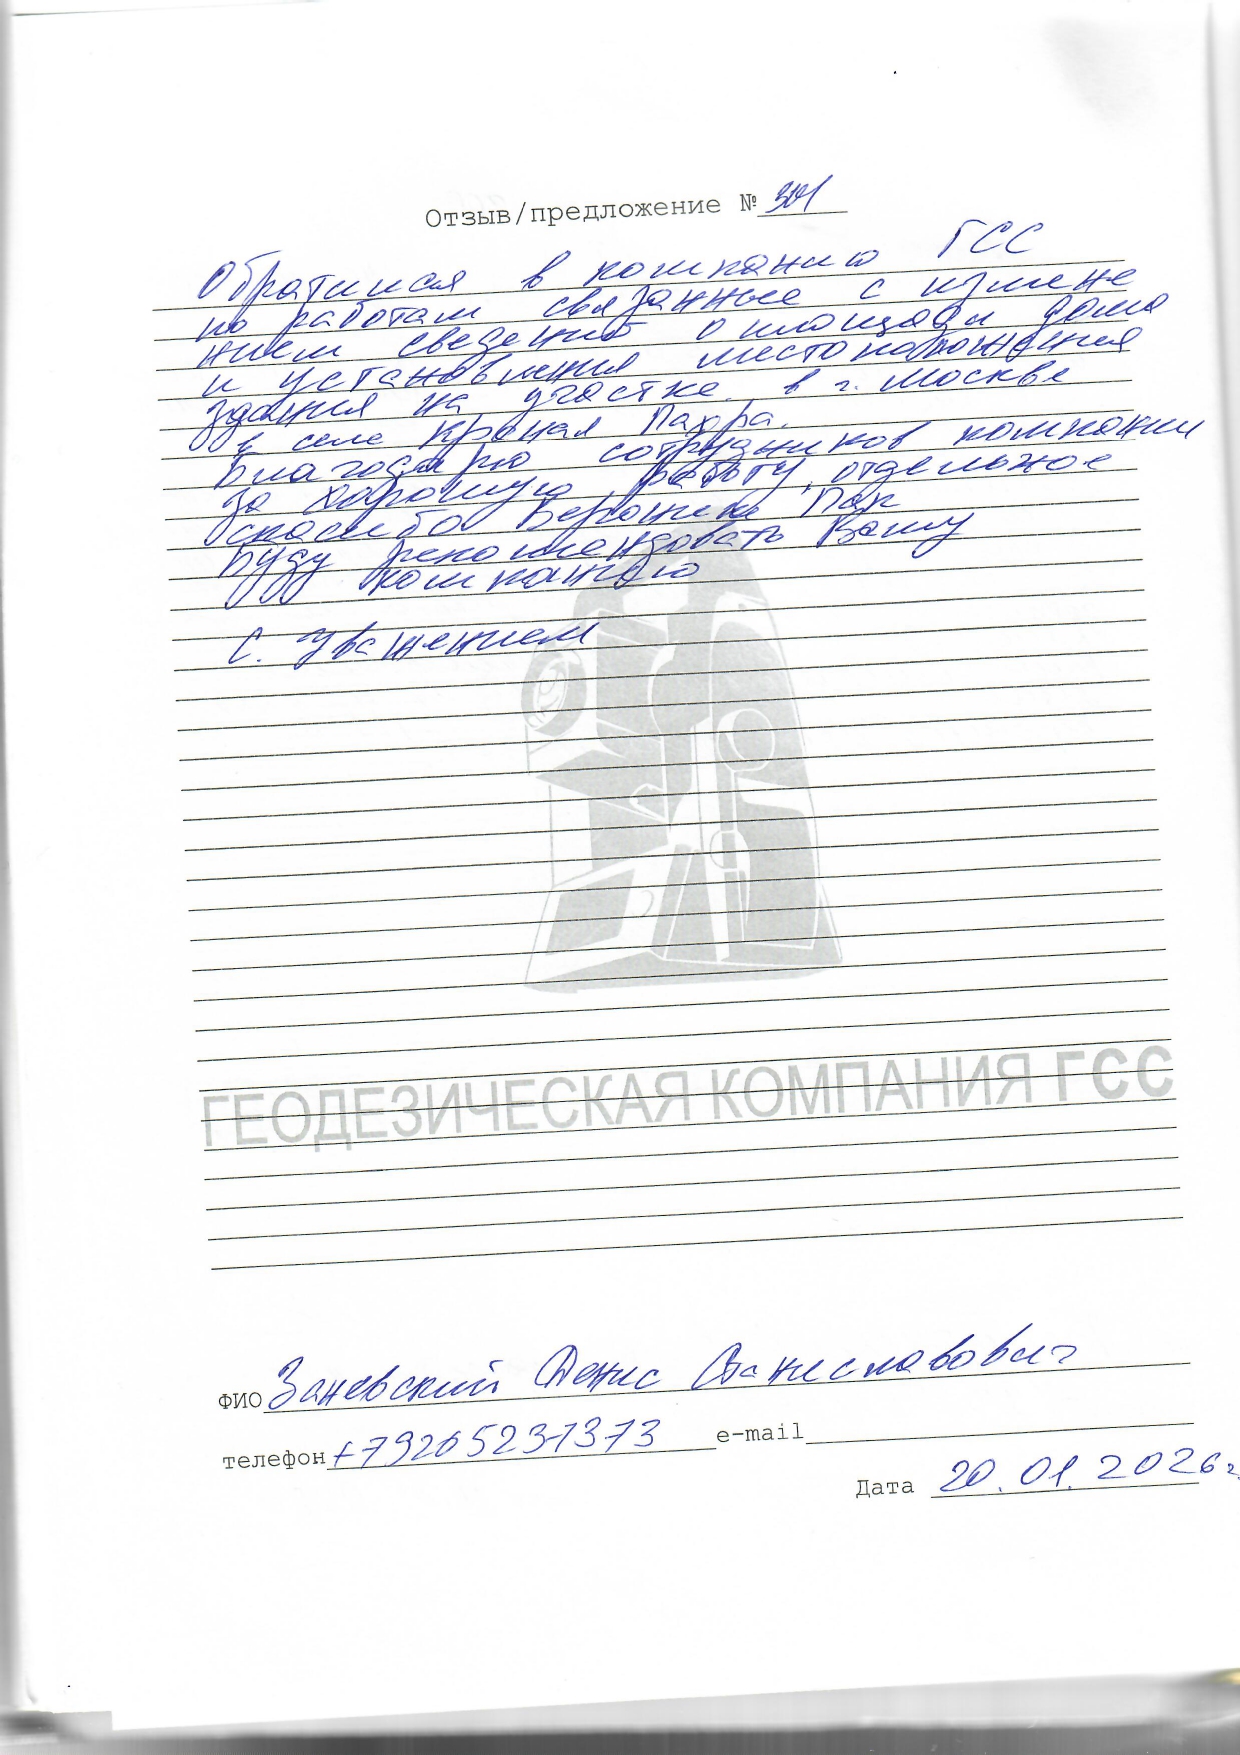 Отзыв/предложение № 301
Обратился в компанию ГСС
по работам связанные с измене
нием сведений о площади дома
и установления местонахождения
здания на участке в г. Москве
в селе Красная Пахра.
Благодарю сотрудников компании
за хорошую работу, отдельное
спасибо Веронике Пак
Буду рекомендовать Вашу
компанию
С. Уважением
ГЕОДЕЗИЧЕСКАЯ КОМПАНИЯ ГСС
ФИО Заневский Денис Станиславович
телефон +79265231373 e-mail
Дата 20.01.2026 г.